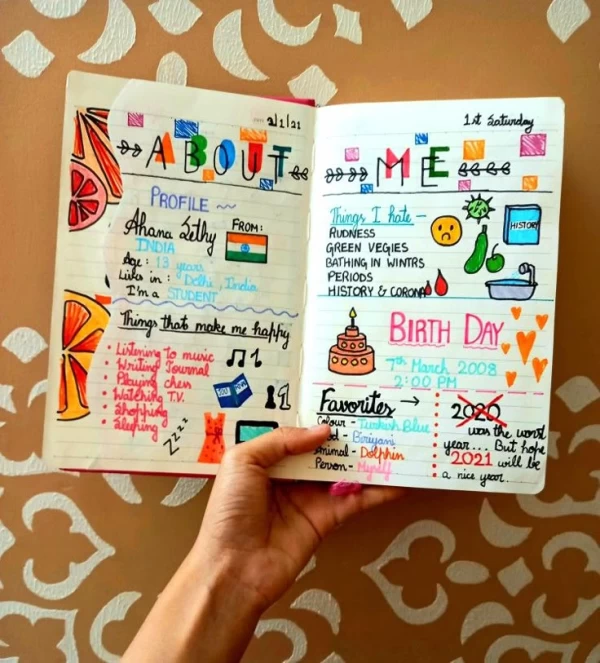 2/1/21
ABOUT
PROFILE
Ahana Sethy
INDIA
FROM:
Age : 13 years
Lives in : Delhi, India
I'm a STUDENT
Things that make me happy
Listening to music
Writing Journal
Playing chess
Watching T.V.
Shopping
Sleeping
ZZZZ
1st Saturday
ME
Things I hate -
RUDNESS
GREEN VEGIES
BATHING IN WINTRS
PERIODS
HISTORY & CORONA
HISTORY
BIRTH DAY
7th March 2008
2:00 PM
Favorites →
Colour - Turkish Blue
od - Biriyani
Animal - Dolphin
Person - Myself
2020
was the worst
year... But hope
2021 will be
a nice year.